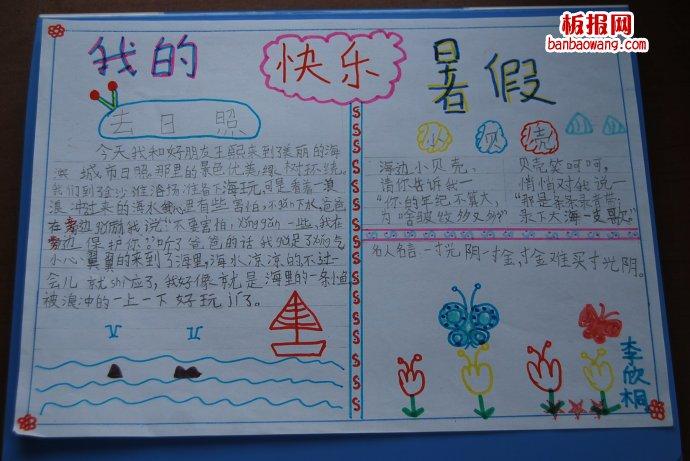 板报网
banbaowang.com
我的 快乐 暑假
去日照
今天我和好朋友王熙来到了美丽的海
滨城市日照那里的景色优美,绿树环绕。
我们到金沙滩浴场准备下海玩,可是看着一浪
浪冲过来的海水我心里有些害怕,不敢下水,爸爸
在旁边鼓励我说:"不要害怕,yǒng gǎn一些,我在
旁边保护你。"听了爸爸的话我鼓足了yǒng气
小心翼翼的来到了海里,海水凉凉的不过一
会儿就shì应了,我好像就是海里的一条鱼
被浪冲的一上一下好玩jí了。
小贝壳
海边小贝壳,
请你告诉我—
"你的年纪不算大,
为啥皱纹多又多"
贝壳笑呵呵,
悄悄对我说—
"那是录音带,
录下大海一支歌"
名人名言一寸光阴一寸金,寸金难买寸光阴。
李欣桐